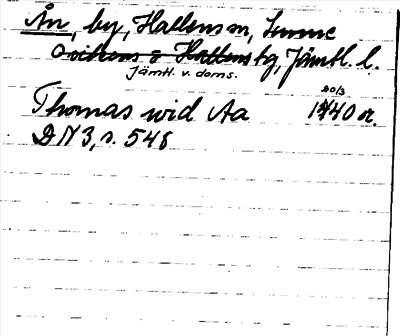 Ån, by, Hallens sn, Sunne
Ovikens o Hallens tg, Jämtl. l.
Jämtl. v. doms.
20/3
Thomas wid Aa 1440 or.
DN 3, s. 548